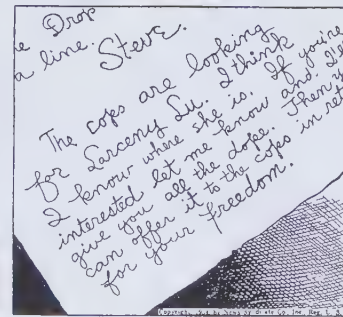 e Drop
a line.
Steve.
The cops are looking
for Larceny Lu. I think
I know where she is. If you're
interested let me know and I'll
give you all the dope. Then y
can offer it to the cops in ret
for your freedom.